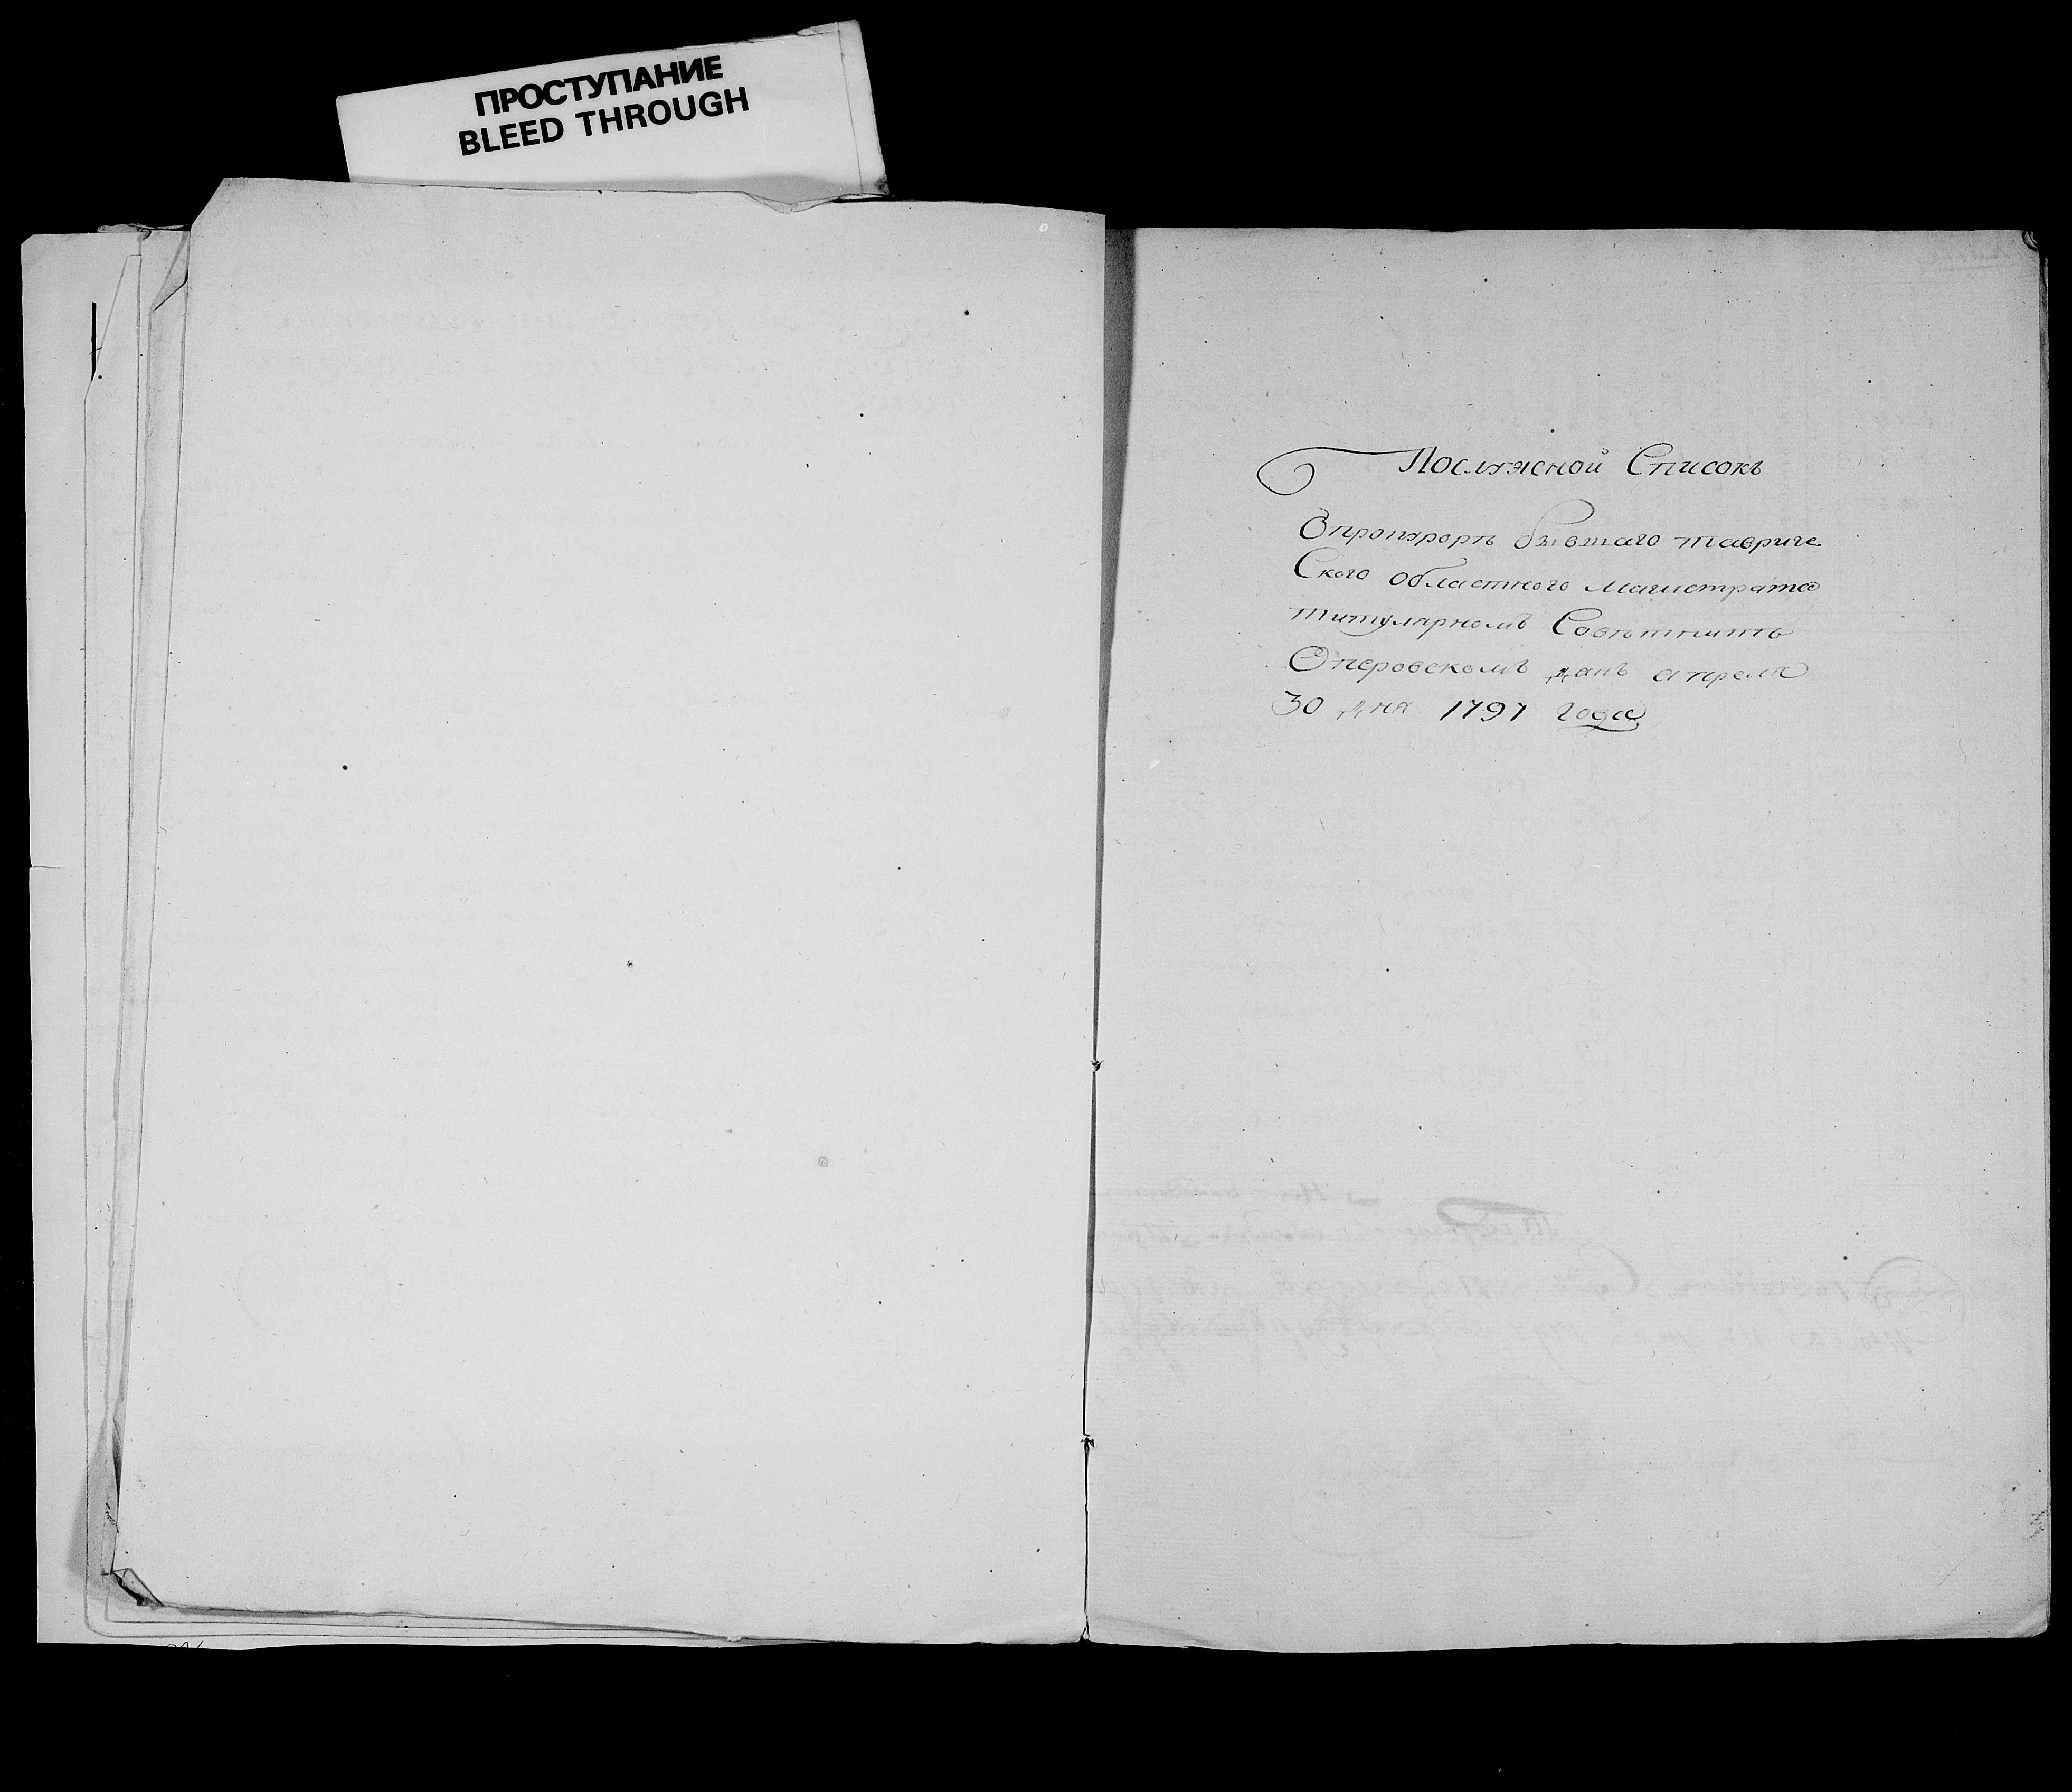 ПРОСТУПАНИЕ
BLEED THROUGH
Послужной Списокъ
Опрокуроре бывшаго тавриче
Ского областного магистрата
титулярномъ Советнике
Оперовскомъ данъ апреля
30 дня 1797 года